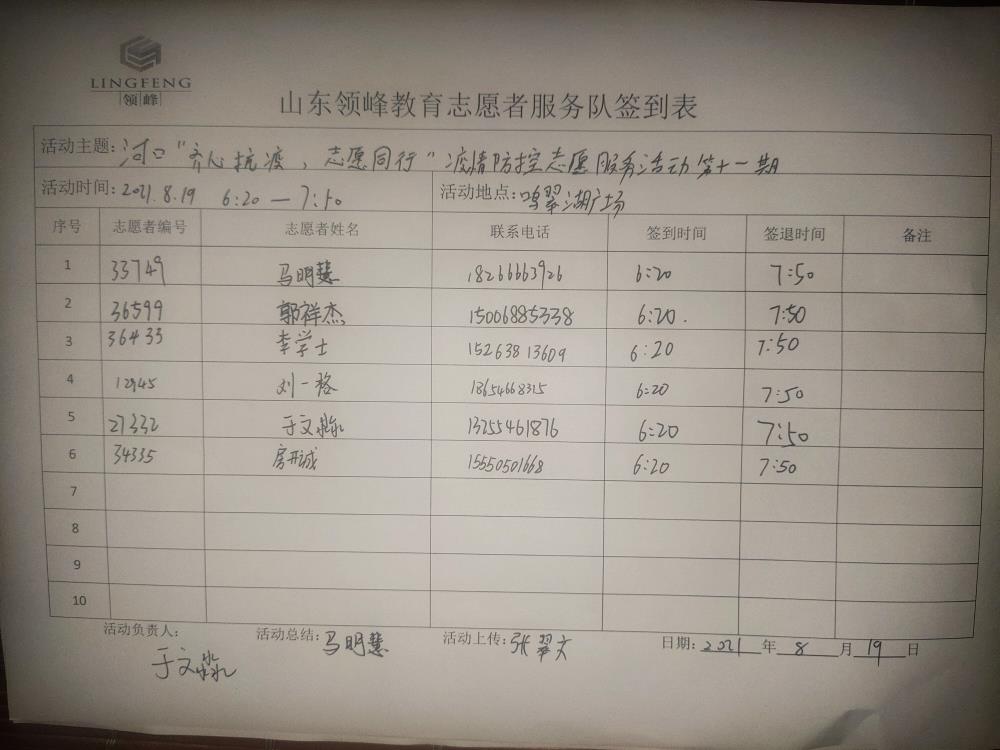 LINGFENG
领峰
山东领峰教育志愿者服务队签到表
活动主题:河口"齐心抗疫、志愿同行"疫情防控志愿服务活动第十一期
活动时间:2021.8.19 6:20—7:50 活动地点:鸣翠湖广场
序号 志愿者编号 志愿者姓名 联系电话 签到时间 签退时间 备注
1 33749 马明慧 18266663926 6:20 7:50
2 36599 郭祥杰 15006885338 6:20. 7:50
3 36433 李学士 15263813609 6:20 7:50
4 12945 刘一格 18654668315 6:20 7:50
5 27332 于文淼 13255461876 6:20 7:50
6 34335 房开诚 15550501668 6:20 7:50
7
8
9
10
活动负责人: 活动总结:马明慧 活动上传:张翠文 日期:2021年8月19日
于文淼